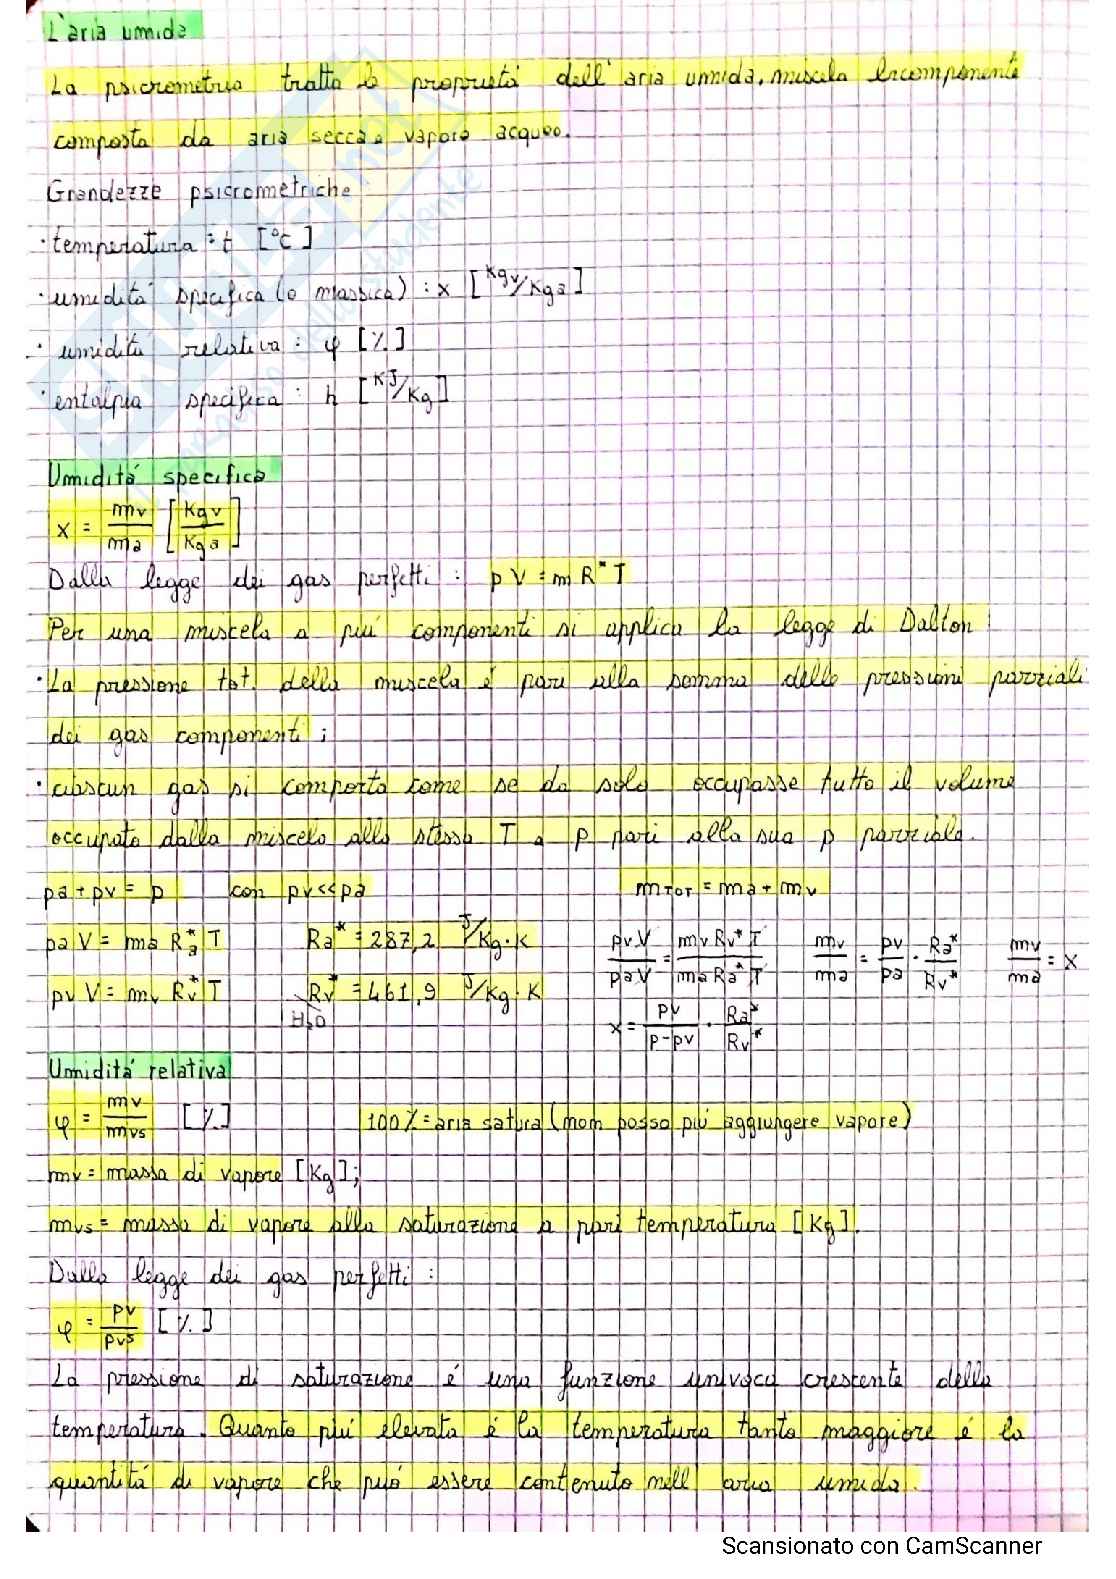 L'aria umida
La psicrometria tratta le proprietá dell'aria umida, miscela bicomponente
composta da aria secca e vapore acqueo.
Grandezze psicrometriche
· temperatura : t [°C]
· umiditá specifica (o massica) : x [Kgv/Kga]
· umiditá relativa : φ [%]
· entalpia specifica : h [KJ/Kg]
Umiditá specifica
x = mv/ma [Kgv/Kga]
Dalla legge dei gas perfetti : pV = m R* T
Per una miscela a piú componenti si applica la legge di Dalton :
· La pressione tot. della miscela é pari alla somma delle pressioni parziali
dei gas componenti ;
· ciascun gas si comporta come se da solo occupasse tutto il volume
occupato dalla miscela alla stessa T e p pari alla sua p parziale.
pa + pv = p con pv << pa mTOT = ma + mv
pa V = ma Ra* T Ra* = 287,2 J/Kg·K pv V/pa V = mv Rv* T/ma Ra* T mv/ma = pv/pa · Ra*/Rv* mv/ma = x
pv V = mv Rv* T Rv* = 461,9 J/Kg·K
H2O
x = pv/p-pv · Ra*/Rv*
Umiditá relativa
φ = mv/mvs [%] 100% = aria satura (non posso piú aggiungere vapore)
mv = massa di vapore [Kg];
mvs = massa di vapore alla saturazione a pari temperatura [Kg].
Dalla legge dei gas perfetti :
φ = pv/pvs [%]
La pressione di saturazione é una funzione univoca crescente della
temperatura. Quanto piú elevata é la temperatura tanto maggiore é la
quantitá di vapore che puó essere contenuto nell'aria umida.
Scansionato con CamScanner